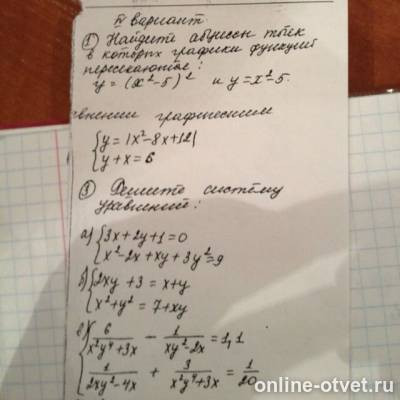 IV вариант.
① Найдите абциссы точек
в которых графики функций
пересекаются:
y = (x² - 5)² и y = x² - 5.
авнении графическим
{y = |x² - 8x + 12|
{y + x = 6
③ Решите систему
уравнений:
а) {3x + 2y + 1 = 0
{x² - 2x + xy + 3y² = 9
б) {2xy + 3 = x + y
{x² + y² = 7 + xy
в) {6/(x²y⁴ + 3x) - 1/(xy² - 2x) = 1,1
{1/(2xy² - 4x) + 3/(x²y⁴ + 3x) = 1/20
online-otvet.ru